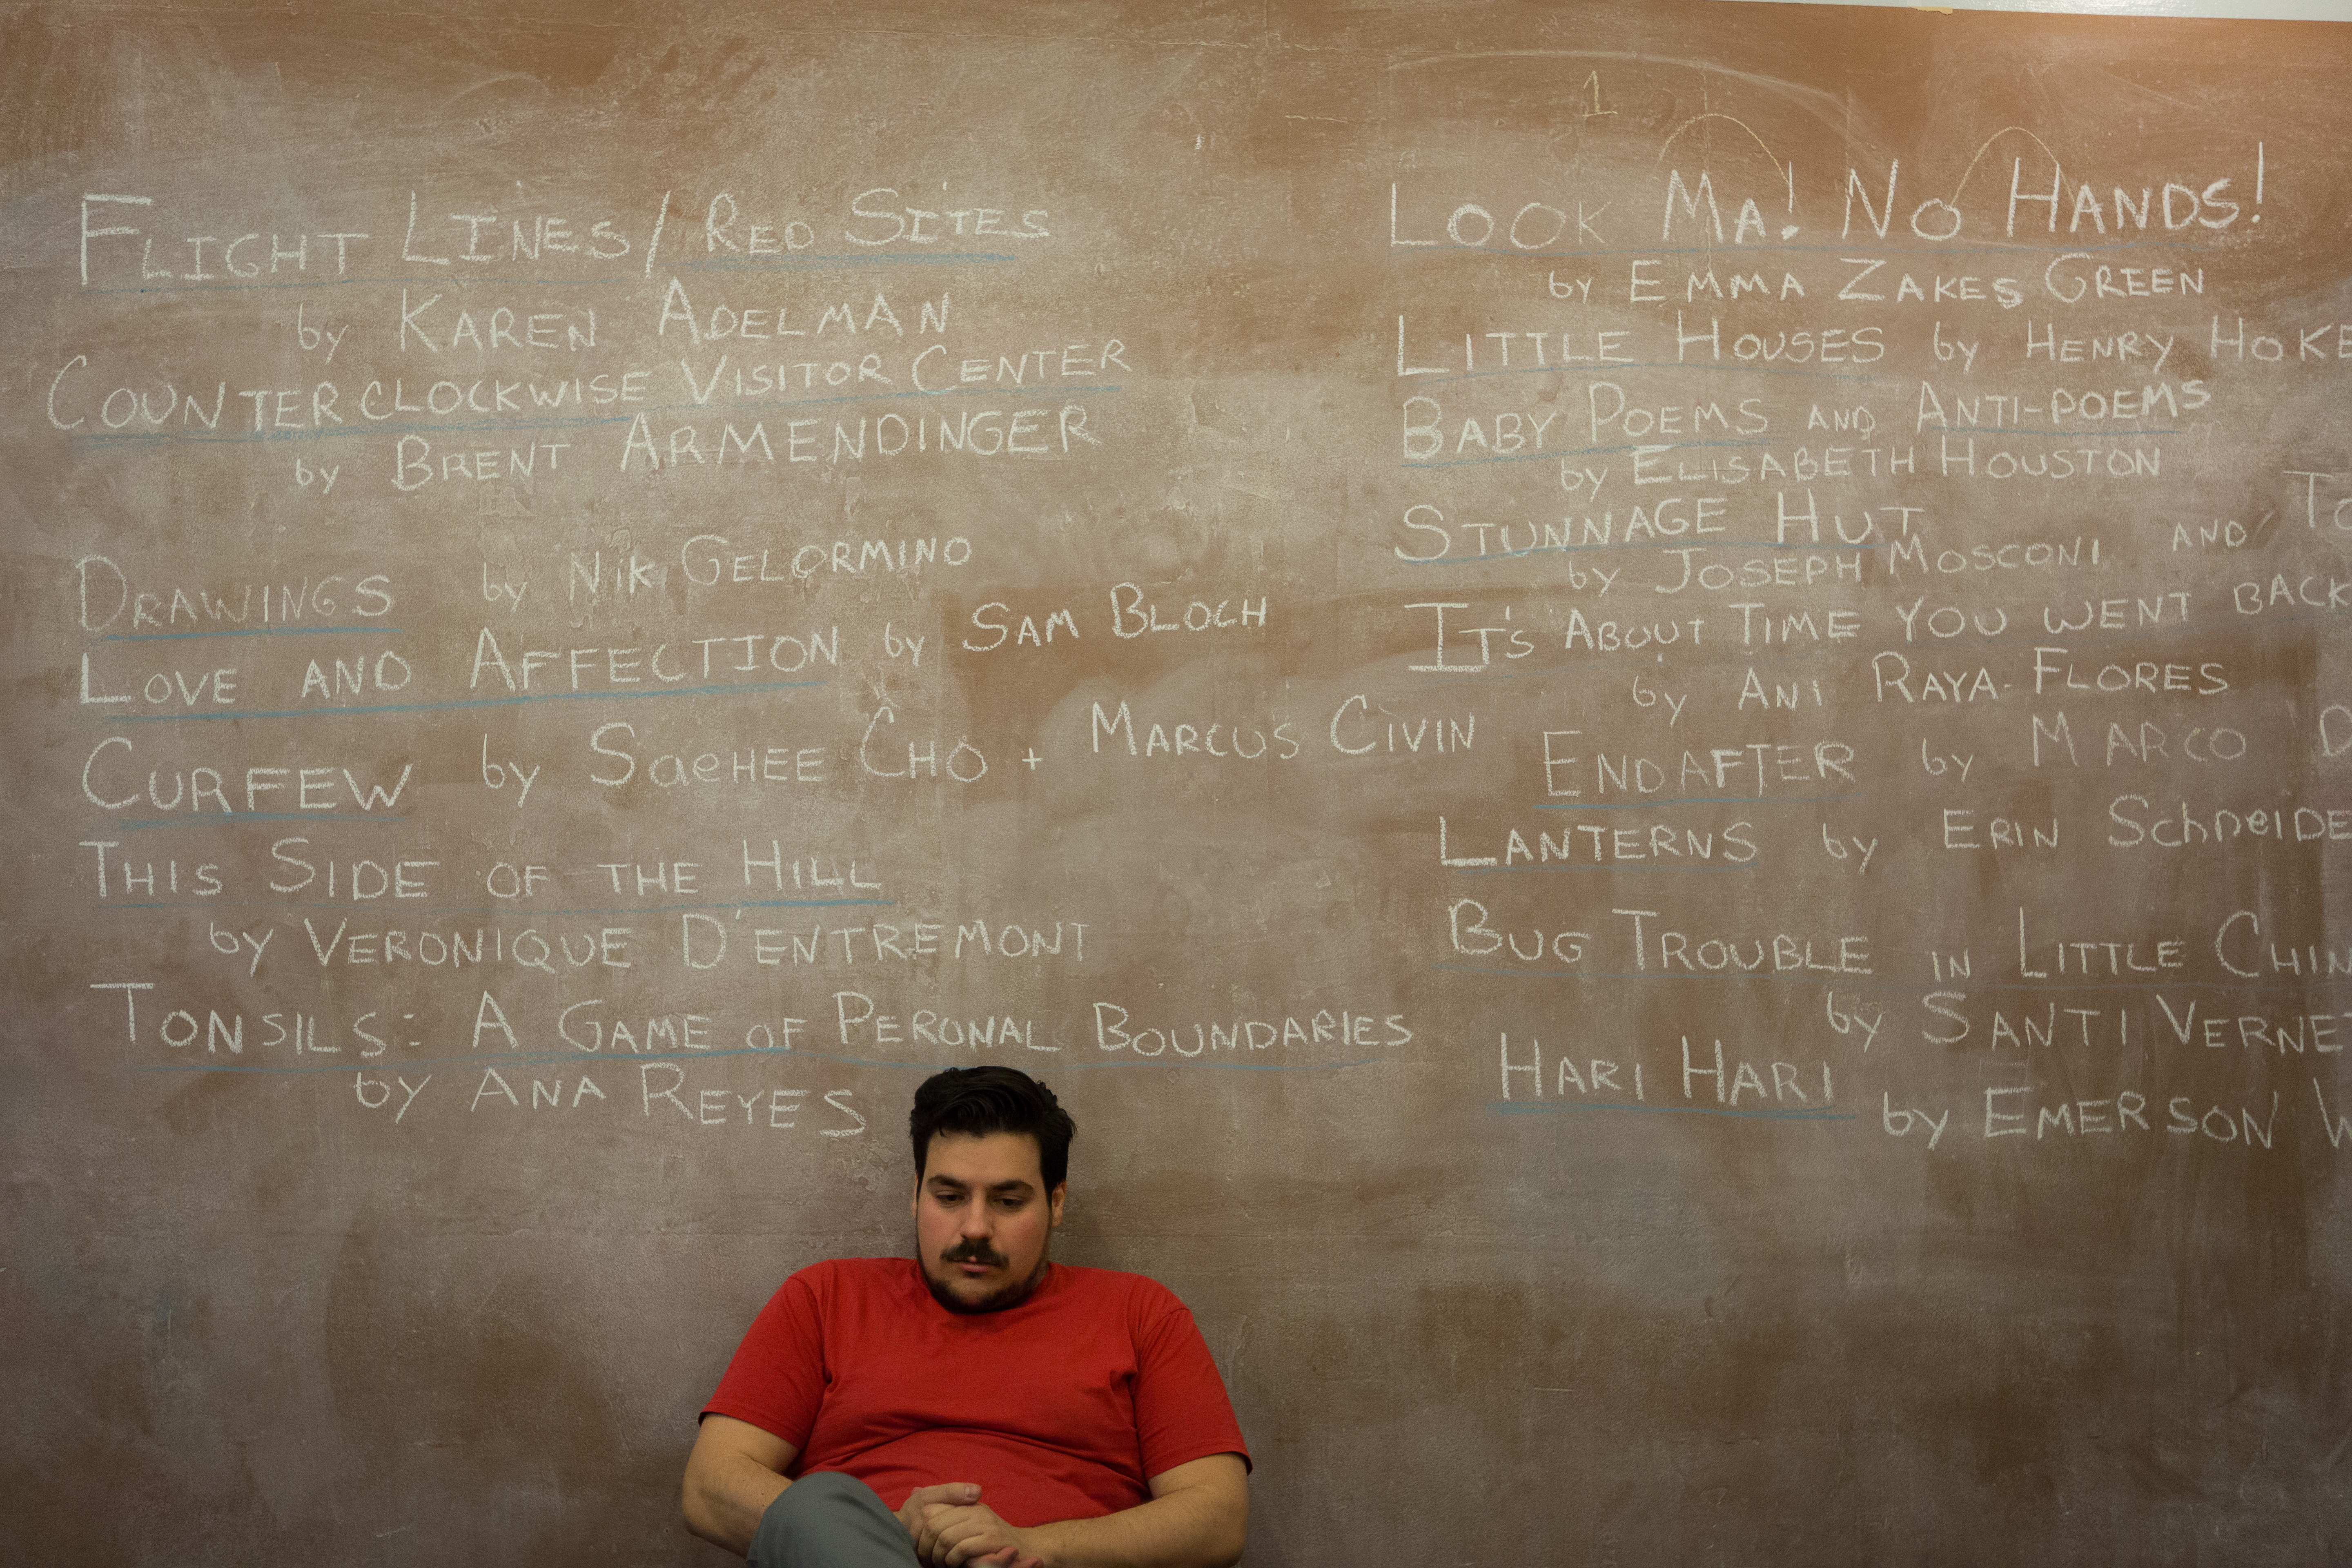 FLIGHT LINES / RED SITES
by KAREN ADELMAN
COUNTERCLOCKWISE VISITOR CENTER
by BRENT ARMENDINGER
DRAWINGS by NIK GELORMINO
LOVE AND AFFECTION by SAM BLOCH
CURFEW by SaeHEE CHO + MARCUS CIVIN
THIS SIDE OF THE HILL
by VERONIQUE D'ENTREMONT
TONSILS: A GAME OF PERONAL BOUNDARIES
by ANA REYES
1
LOOK MA! NO HANDS!
by EMMA ZAKES GREEN
LITTLE HOUSES by HENRY HOKE
BABY POEMS AND ANTI-POEMS
by ELISABETH HOUSTON
STUNNAGE HUT
by JOSEPH MOSCONI AND
IT'S ABOUT TIME YOU WENT BACK
by ANI RAYA-FLORES
ENDAFTER by MARCO
LANTERNS by ERIN
BUG TROUBLE IN LITTLE
by SANTI
HARI HARI by EMERSON